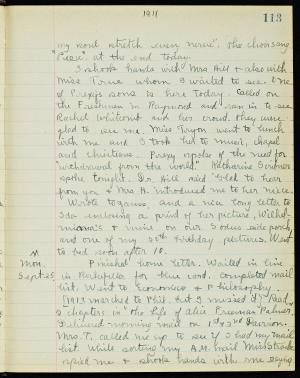 1911
113
my soul stretch every nerve". The choir sang
at the end today.
I shook hands with Mrs Hill & also with
Miss True whom I wanted to see. One
of Prexy's sons is here today. Called on
the Freshmen in Raymond and ran in to see
Rachel Whitcomb and her crowd. They were
glad to see me. Miss Tryon went to lunch
with me and I took her to music, chapel
and Christians. Prexy spoke of the need for
"withdrawal from the world." Katharine
spoke tonight. Dr. Hill said "Glad to hear
from you & Mrs H. introduced me to her niece.
Wrote to and a nice long letter to
Ida enclosing a print of her picture,
& mine on our side porch,
and one of my 20th birthday pictures. Went
to bed soon after 10.
Mon.
Sept. 25
Finished home letter. Waited in line
in Rockefeller for blue card. Completed mail
list. Went to Economics & Philosophy.
1913 marched to Phil. but I missed it. Read
2 chapters in the Life of Alice Freeman Palmer.
Delivered morning mail on 1st & 2nd Davison.
Mrs. T. called me up to see if I had my mail
list. While sorting my A.M. mail Miss
me & shook hands with me saying